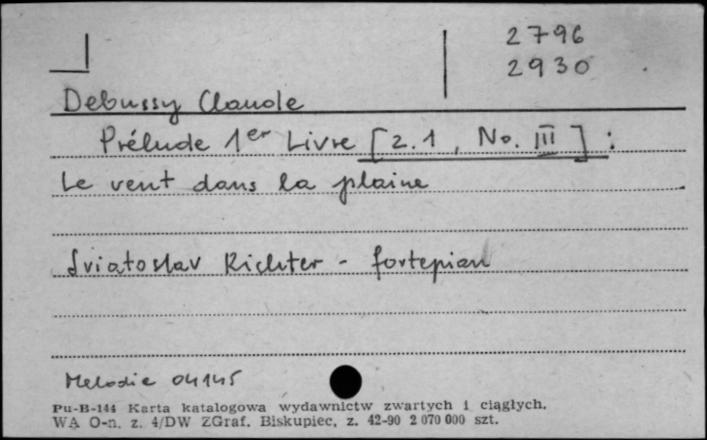 2796
2930
Debussy Claude
Prélude 1er Livre [z. 1, No. III] :
Le vent dans la plaine
Sviatoslav Richter - fortepian
Melodie 04145
Pu-B-144 Karta katalogowa wydawnictw zwartych i ciągłych.
WA O-n. z. 4/DW ZGraf. Biskupiec, z. 42-90 2 070 000 szt.